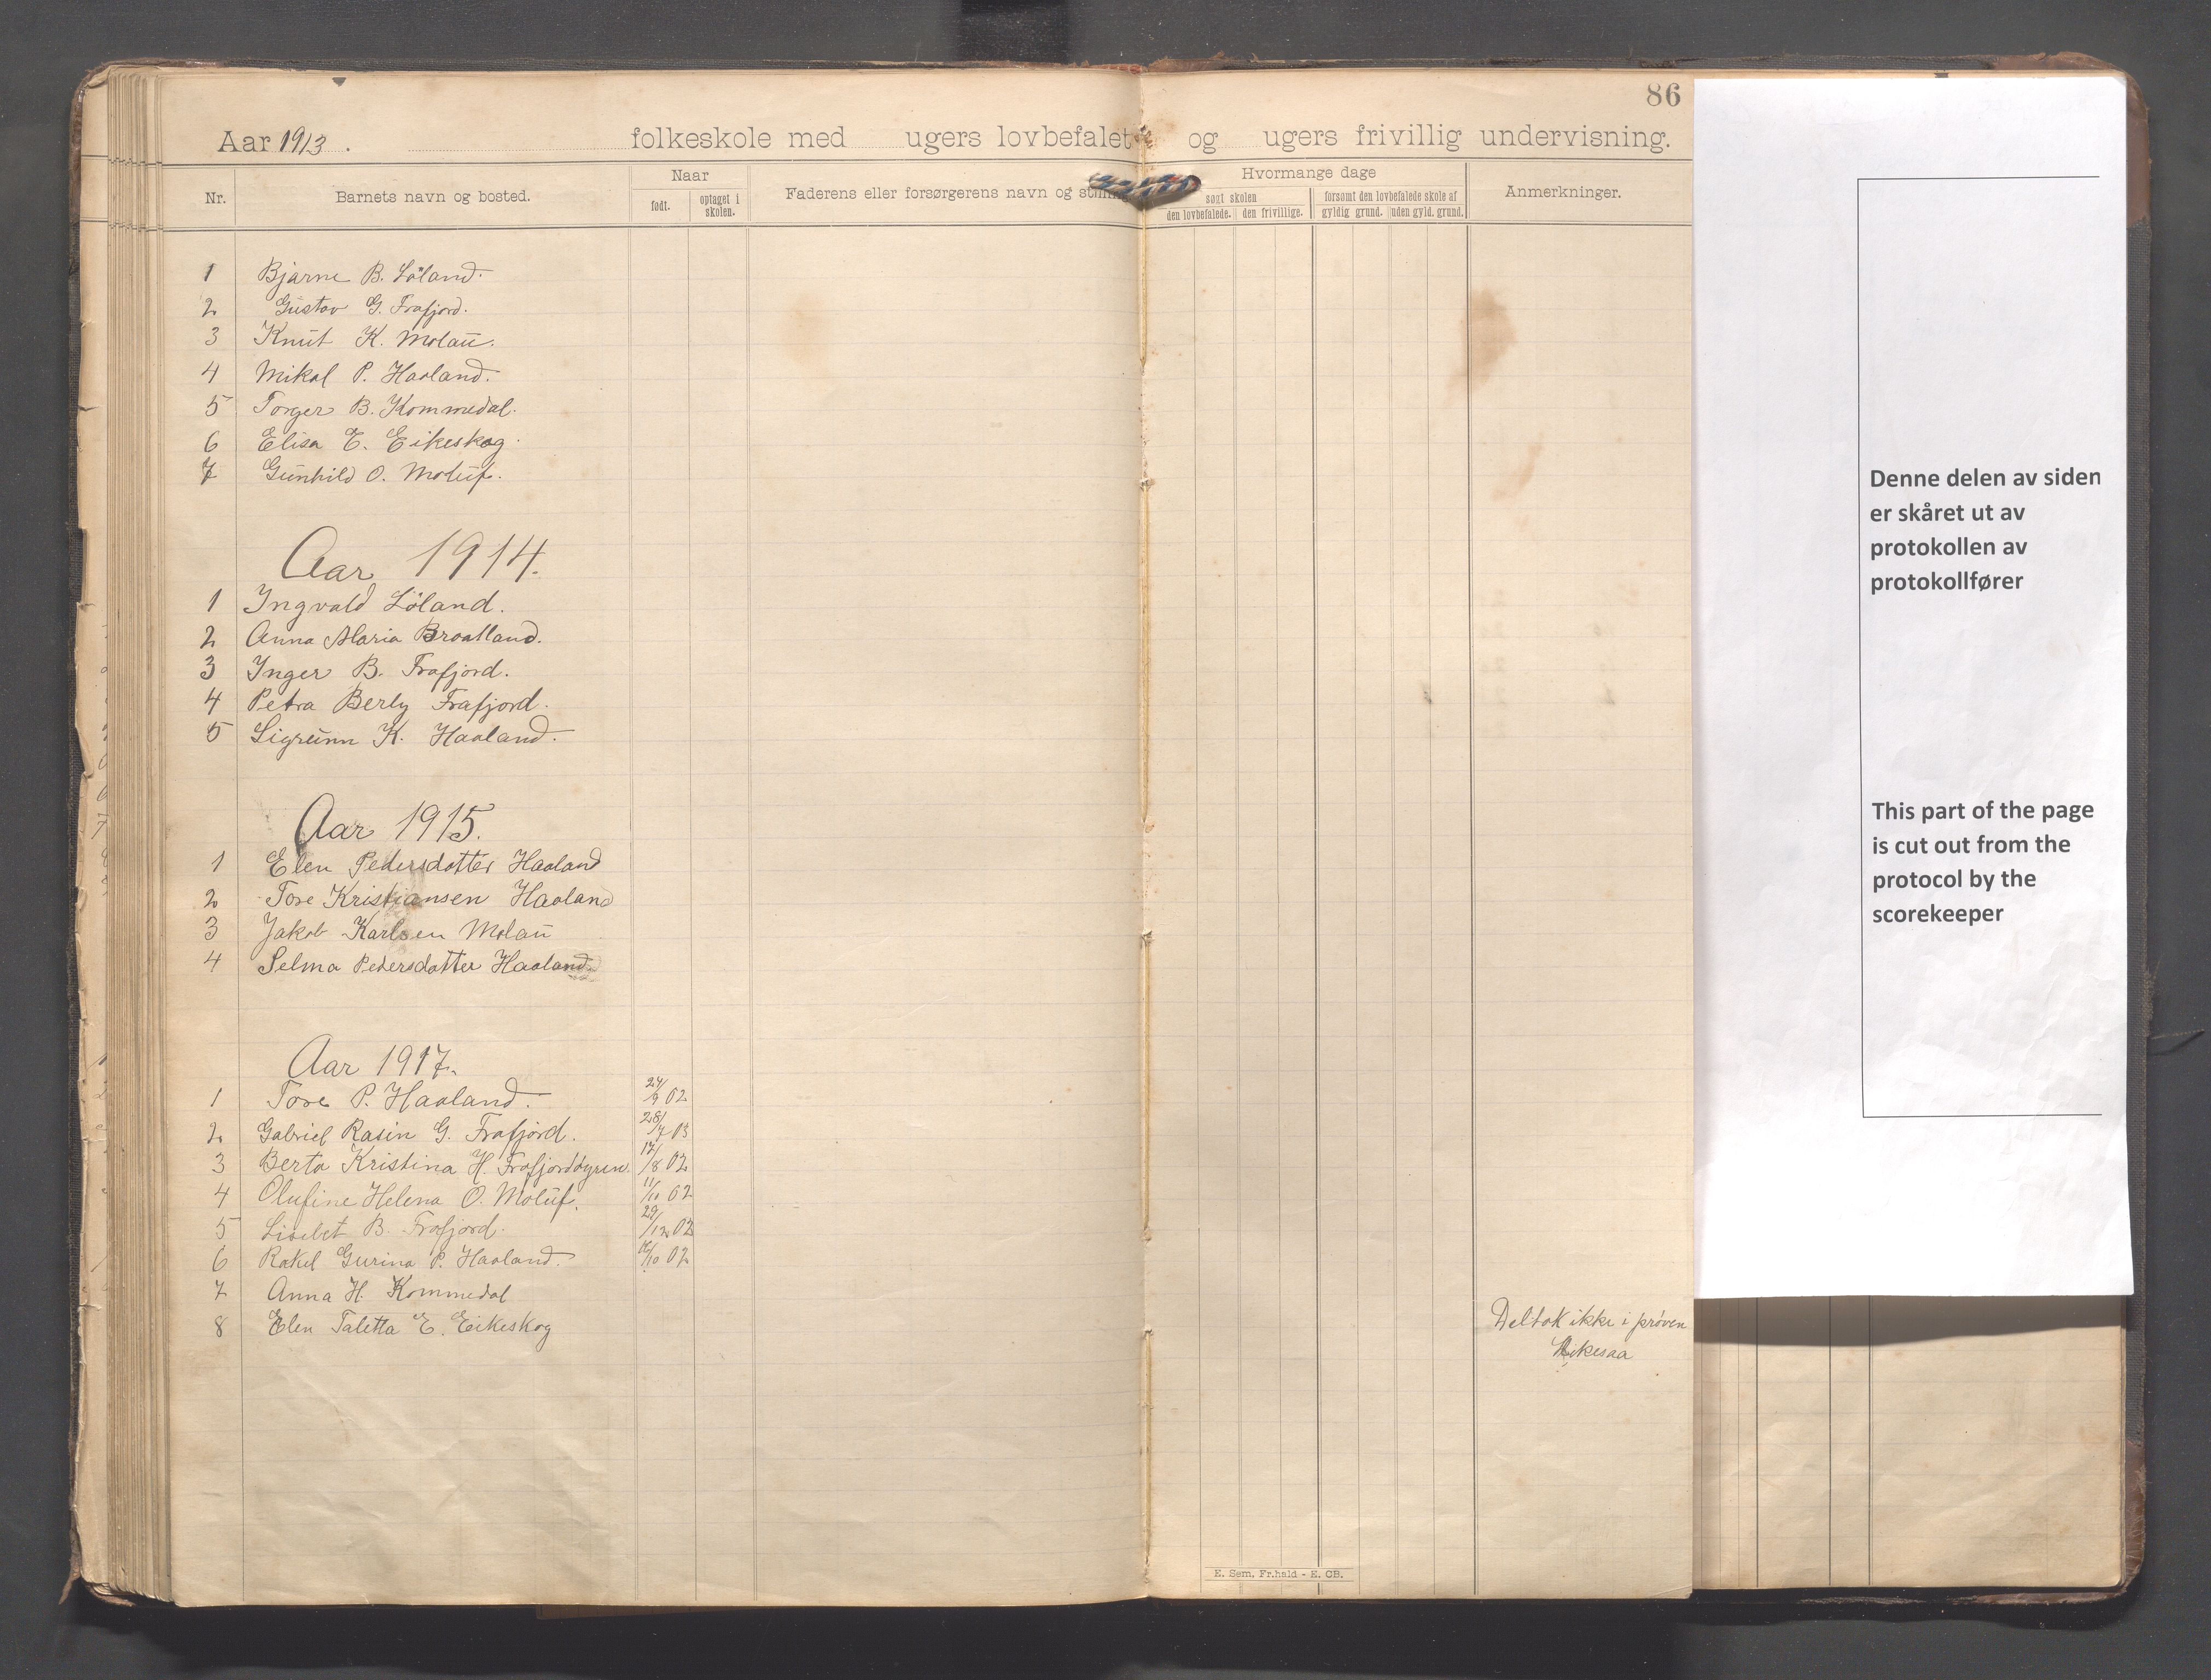 86
Aar 1913. folkeskole med ugers lovbefalet og ugers frivillig undervisning.
Nr. Barnets navn og bosted. Naar Faderens eller forsørgerens navn og stilling Hvormange dage Anmerkninger.
født. optaget i skolen. søgt skolen forsømt den lovbefalede skole af
den lovbefalede. den frivillige. gyldig grund. uden gyld. grund.
1 Bjarne B. Løland.
2 Gustav G. Frafjord.
3 Knut K. Molau.
4 Mikal P. Haaland.
5 Torger B. Kommedal.
6 Elisa E. Eikeskog.
7 Gunhild O. Moluf.
Aar 1914.
1 Ingvald Løland.
2 Anna Maria Braatland.
3 Inger B. Frafjord.
4 Petra Berly Frafjord.
5 Sigrunn K. Haaland.
Aar 1915.
1 Elen Pedersdotter Haaland
2 Tore Kristiansen Haaland
3 Jakob Karlsen Molau
4 Selma Pedersdotter Haaland
Aar 1917.
1 Tore P. Haaland. 24/9 02
2 Gabriel Rasin G. Frafjord. 28/7 03
3 Berta Kristina H. Frafjordøyren. 17/8 02
4 Olufine Helena O. Moluf. 11/11 02
5 Lisebet B. Frafjord. 29/12 02
6 Rakel Gurina P. Haaland. /10 02
7 Anna H. Kommedal
8 Elen Taletta E. Eikeskog Deltok ikke i prøven
Eikesaa
E. Sem, Fr.hald - E. CB.
Denne delen av siden
er skåret ut av
protokollen av
protokollfører
This part of the page
is cut out from the
protocol by the
scorekeeper